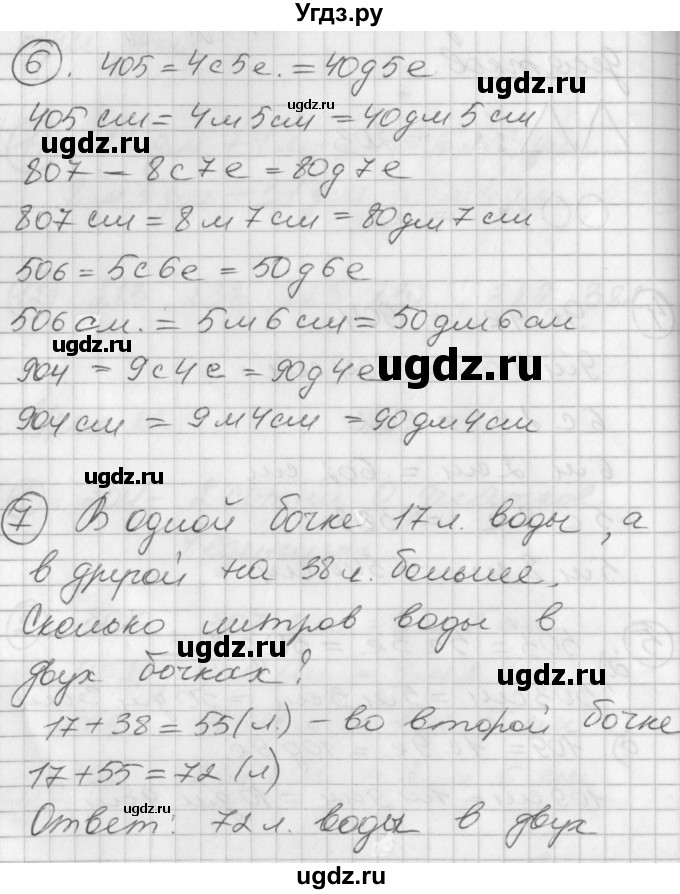 Угдз.ру
6. 405 = 4с5е. = 40д5е
ugdz.ru
405 см = 4м5см = 40дм5см
ugdz.ru
807 – 8с7е = 80д7е
807 см = 8м7см = 80дм7см
ugdz.ru
506 = 5с6е = 50д6е
506 см. = 5м6см = 50дм6см
904 = 9с4е = 90д4е
ugdz.ru
904 см = 9м4см = 90дм4см
ugdz.ru
7 В одной бочке 17 л. воды, а
в другой на 38 л. больше.
Сколько литров воды в
ugdz.ru
двух бочках?
ugdz.ru
17 + 38 = 55 (л.) – во второй бочке
17 + 55 = 72 (л)
ugdz.ru
Ответ: 72 л. воды в двух
ugdz.ru